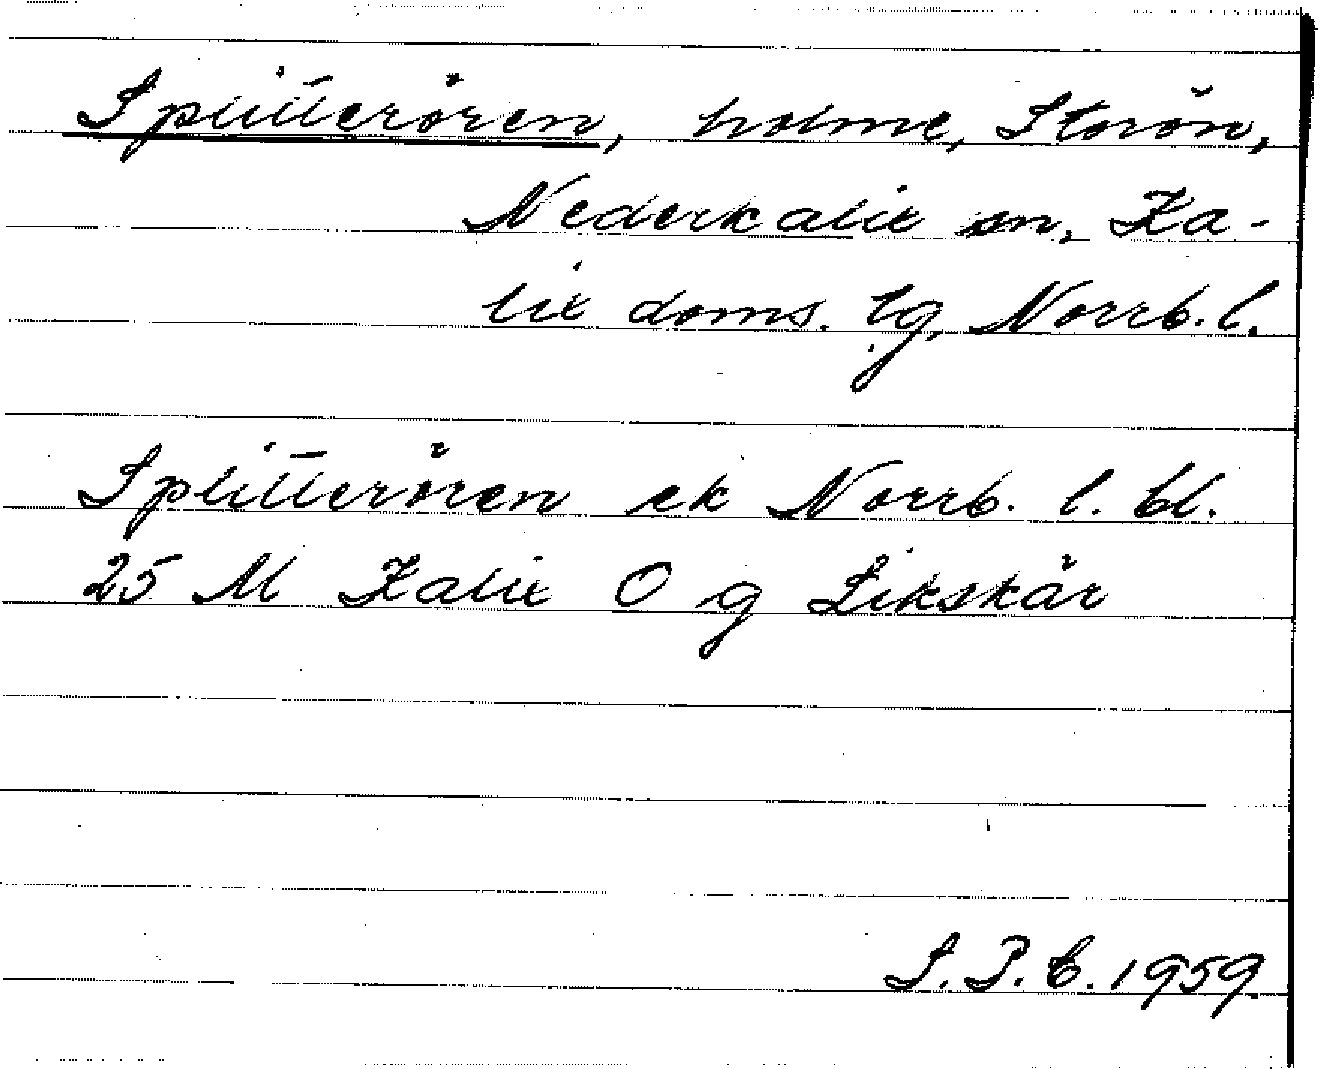 Splitterören, holme, Storön,
Nederkalix sn, Ka-
lix doms. tg, Norrb. l.
Splitterören ek Norrb. l. bl.
25 M Kalix O g Likskär
S.P.C. 1959